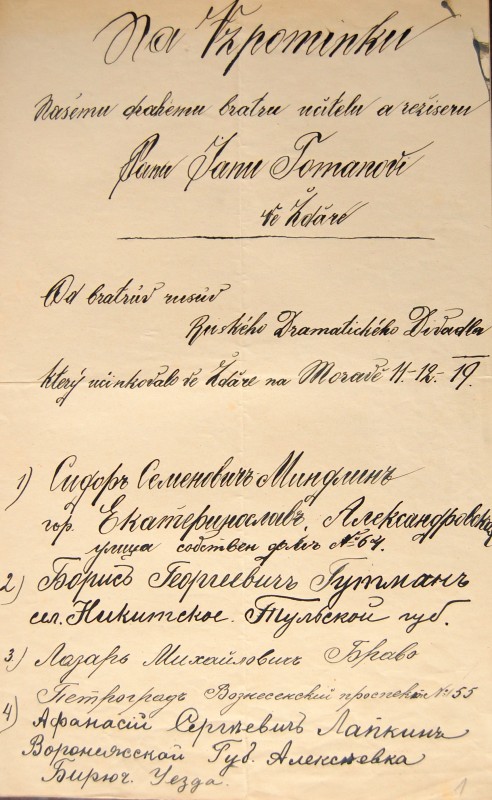 Na Vzpomínku
Našému drahému bratru učitelu a režiseru
Panu Janu Tomanovi
ve Ždáře
Od bratrův rusův
Ruského Dramatického Divadla
který učinkovalo ve Ždáře na Moravě 11.-12.-19.
1) Сидоръ Семеновичъ Миндлинъ
гор. Екатеринославъ, Александровская
улица собствен домъ № 64.
2) Борисъ Георгіевичъ Гутманъ
сел. Никитское. Тульской губ.
3.) Лазарь Михайловичъ Браво
Петроградъ Вознесенскій проспектъ № 55
4) Афанасій Сергѣевичъ Лапкинъ
Воронѣжской Губ. Алексѣевка
Бирюч. Уезда.
1